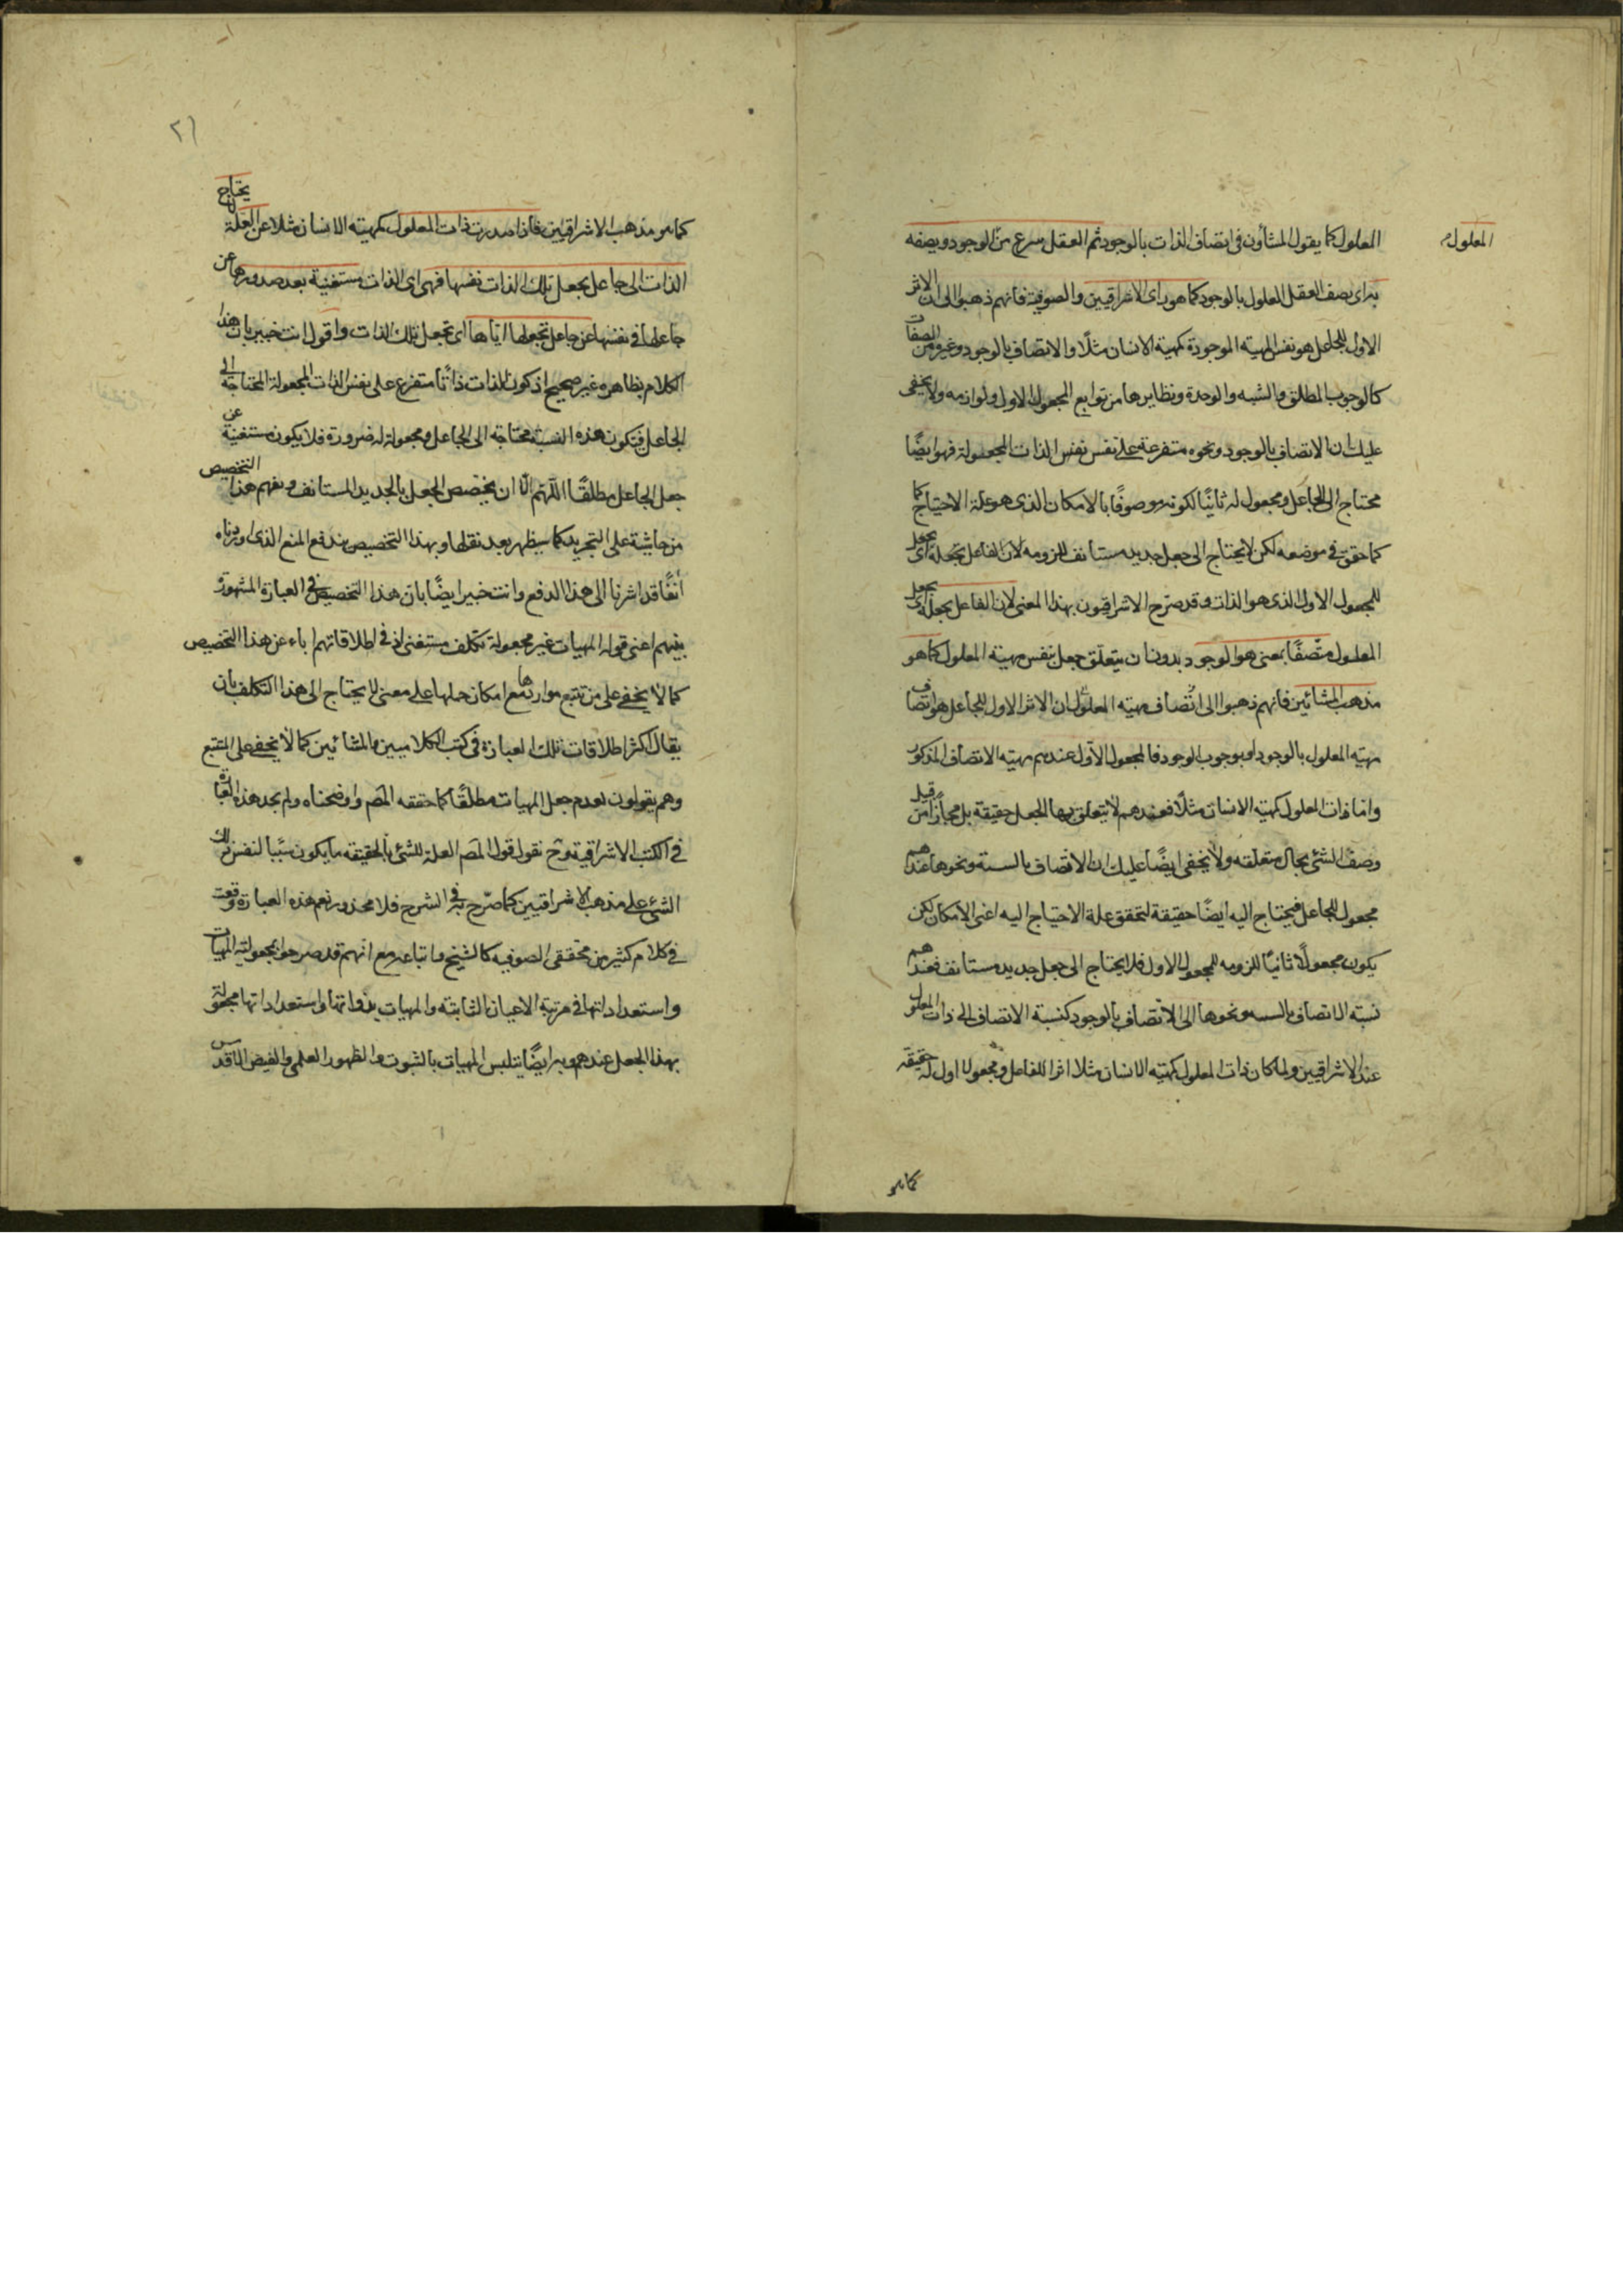 المعلول
المعلول كما يقول المشاؤن فى اتصاف الذات بالوجود ثم العقل من الوجود ويصفه
به اى يصف العقل المعلول بالوجود كما هو راى الاشراقيين والصوفية فانهم ذهبوا الى ان الاثر
الاول للجاعل هو نفس المهية الموجودة كمهية الانسان مثلًا والاتصاف بالوجود وغيره من الصفات
كالوجوب المطلق والوحدة ونظايرها من توابع المجعول الاول ولوازمه ولا يخفى
عليك ان الاتصاف بالوجود ونحوه متفرعة على نفس الذات المجعولة فهو ايضًا
محتاج الى الجاعل ومجعول له ثانيًا لكونه موصوفًا بالامكان الذى هو علة الاحتياج
كما حقق فى موضعه لكن لا يحتاج الى جعل جديد مستانف للزومه لان الفاعل اى يجعل
للمجعول الاول الذى هو الذات وقد صرّح الاشراقيون بهذا المعنى لان الفاعل يجعله اى يجعل
المعلول متصفًا بمعنى هو الوجود بدون ان يتعلق جعل بنفس مهية المعلول كما هو
مذهب المشائين فانهم ذهبوا الى ان الاثر الاول للجاعل هو اتصاف
مهية المعلول بالوجود او بوجوب الوجود فالمجعول الاول عندهم مهية الاتصاف المذكور
واما ذات المعلول كمهية الانسان مثلًا فعندهم لا يتعلق بها الجعل حقيقة بل مجازًا من قبيل
وصف الشئ بحال متعلقه ولا يخفى ايضًا عليك ان الاتصاف بالنسبة ونحوها عندهم
مجعول للجاعل فيحتاج اليه ايضًا حقيقة لتحقق علة الاحتياج اليه اعنى الامكان لكن
يكون مجعولًا ثانيًا للزومه للمجعول الاول فلا يحتاج الى جعل جديد مستانف فعندهم
نسبة الاتصاف بالنسبة ونحوها الى الاتصاف بالوجود كنسبة الاتصاف الى ذات المعلول
عند الاشراقيين ولما كان ذات المعلول كمهية الانسان مثلا اثرا للفاعل ومجعولا اول له حقيقة
كما هو
٢١
كما هو مذهب الاشراقيين فاذا صدرت ذات المعلول كمهية الانسان مثلا عن العلة لا يحتاج
الذات الى جاعل يجعل تلك الذات نفسها فهى اى الذات مستغنية بعد صدورها عن
جاعلها فى نفسها عن جاعل يجعلها اياها اى يجعل تلك الذات واقول انت خبير بان هذا
الكلام بظاهره غير صحيح اذ كون الذات ذاتًا متفرع على نفس الذات المجعولة المحتاجة الى
الجاعل فيكون هذه النسبة محتاجة الى الجاعل ومجعولة له ضرورة فلا يكون مستغنية عن
جعل الجاعل مطلقًا اللّهم الّا ان يخصص الجعل بالجديد المستانف ويفهم هذا التخصيص
من حاشيته على التجريد كما سيظهر بعد نقلها وبهذا التخصيص يندفع المنع الذى اوردناه
آنفًا قد اشرنا الى هذا الدفع وانت خبير ايضًا بان هذا التخصيص فى العبارة المشهورة
بينهم اعنى قوله المهيات غير مجعولة تكلف مستغنى اذ فى اطلاقاتهم اباء عن هذا التخصيص
كما لا يخفى على من تتبع مواردها مع امكان حملها على معنى لا يحتاج الى هذا التكلف بان
يقال اكثر اطلاقات تلك العبارة فى كتب الكلاميين والمشائين كما لا يخفى على المتتبع
وهم يقولون بعدم جعل المهيات مطلقًا كما حققه المصَ واوضحناه ولم يجد هذه العبارة
فى الكتب الاشراقية وح نقول قول المصَ العلة للشئ بالحقيقه ما يكون سببًا لنفس ذلك
الشئ على مذهب الاشراقيين كما صرّح به فى الشرح فلا محذور نعم هذه العبارة وقعت
فى كلام كثير من محققى الصوفيه كالشيخ واتباعه مع انهم قد صرحوا بمجعولية المهيات
واستعداداتها فى مرتبة الاعيان الثابته والمهيات بذواتها واستعداداتها مجعولة
بهذا الجعل عندهم وبه ايضًا يتلبس المهيات بالثبوت والظهور العلمى والفيض الاقدس